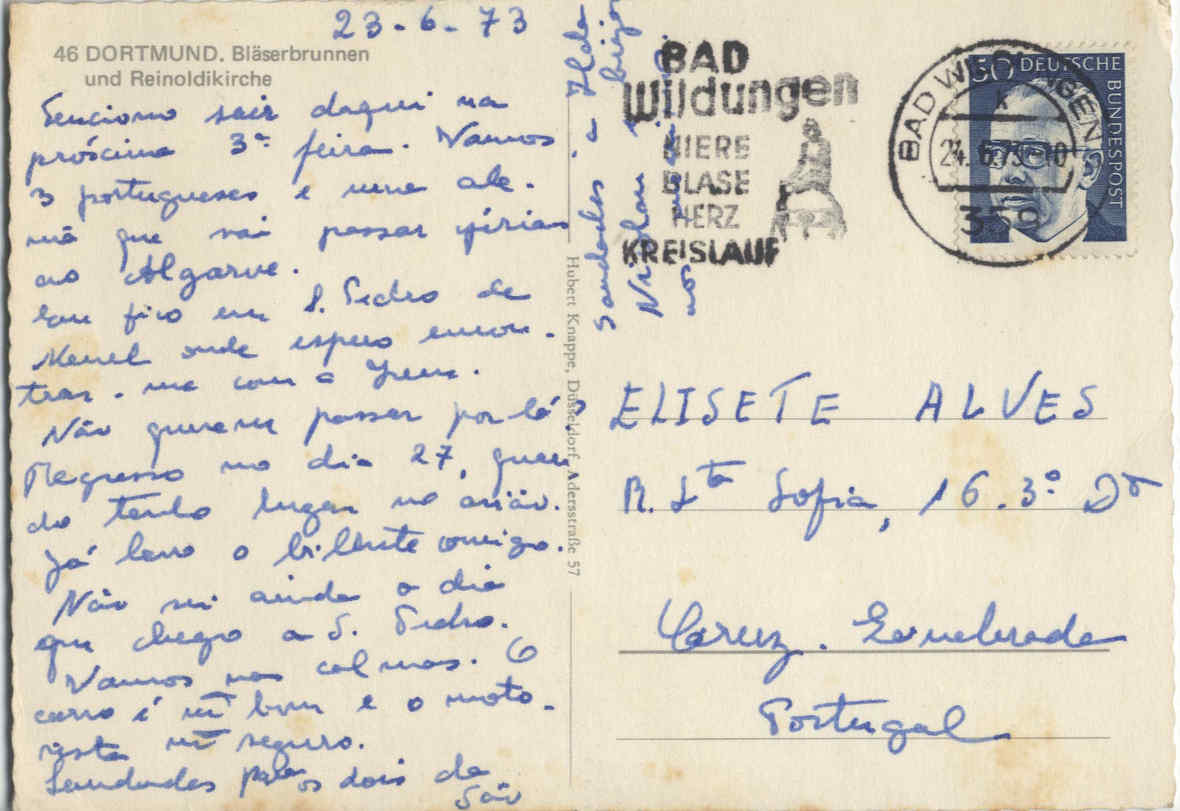 23-6-73
46 DORTMUND. Bläserbrunnen
und Reinoldikirche
Tenciono sair daqui na
próscima 3ª feira. Vamos
3 portugueses e uma ale-
mã que vai passar férias
ao Algarve.
Eu fico em S. Pedro de
Muel onde espero encon-
trar-me com a
Não querem passar por lá?
Regresso no dia 27, quan
do tenho lugar no avião.
Já levo o bilhete comigo.
Não sei ainda o dia
que chego a S. Pedro.
Vamos nas calmas. O
carro é mt bom e o moto-
rista mt seguro.
Saudades para os dois da
São
Saudades a Ilda
Nislau
Hubert Knappe, Düsseldorf, Adersstraße 57
BAD
Wildungen
NIERE
BLASE
HERZ
KREISLAUF
BAD WILDUNGEN
k
24.6.73-10
359
50 DEUTSCHE
BUNDESPOST
ELISETE ALVES
R. Stª Sofia, 16-3º Dto
Cruz-Quebrada
Portugal